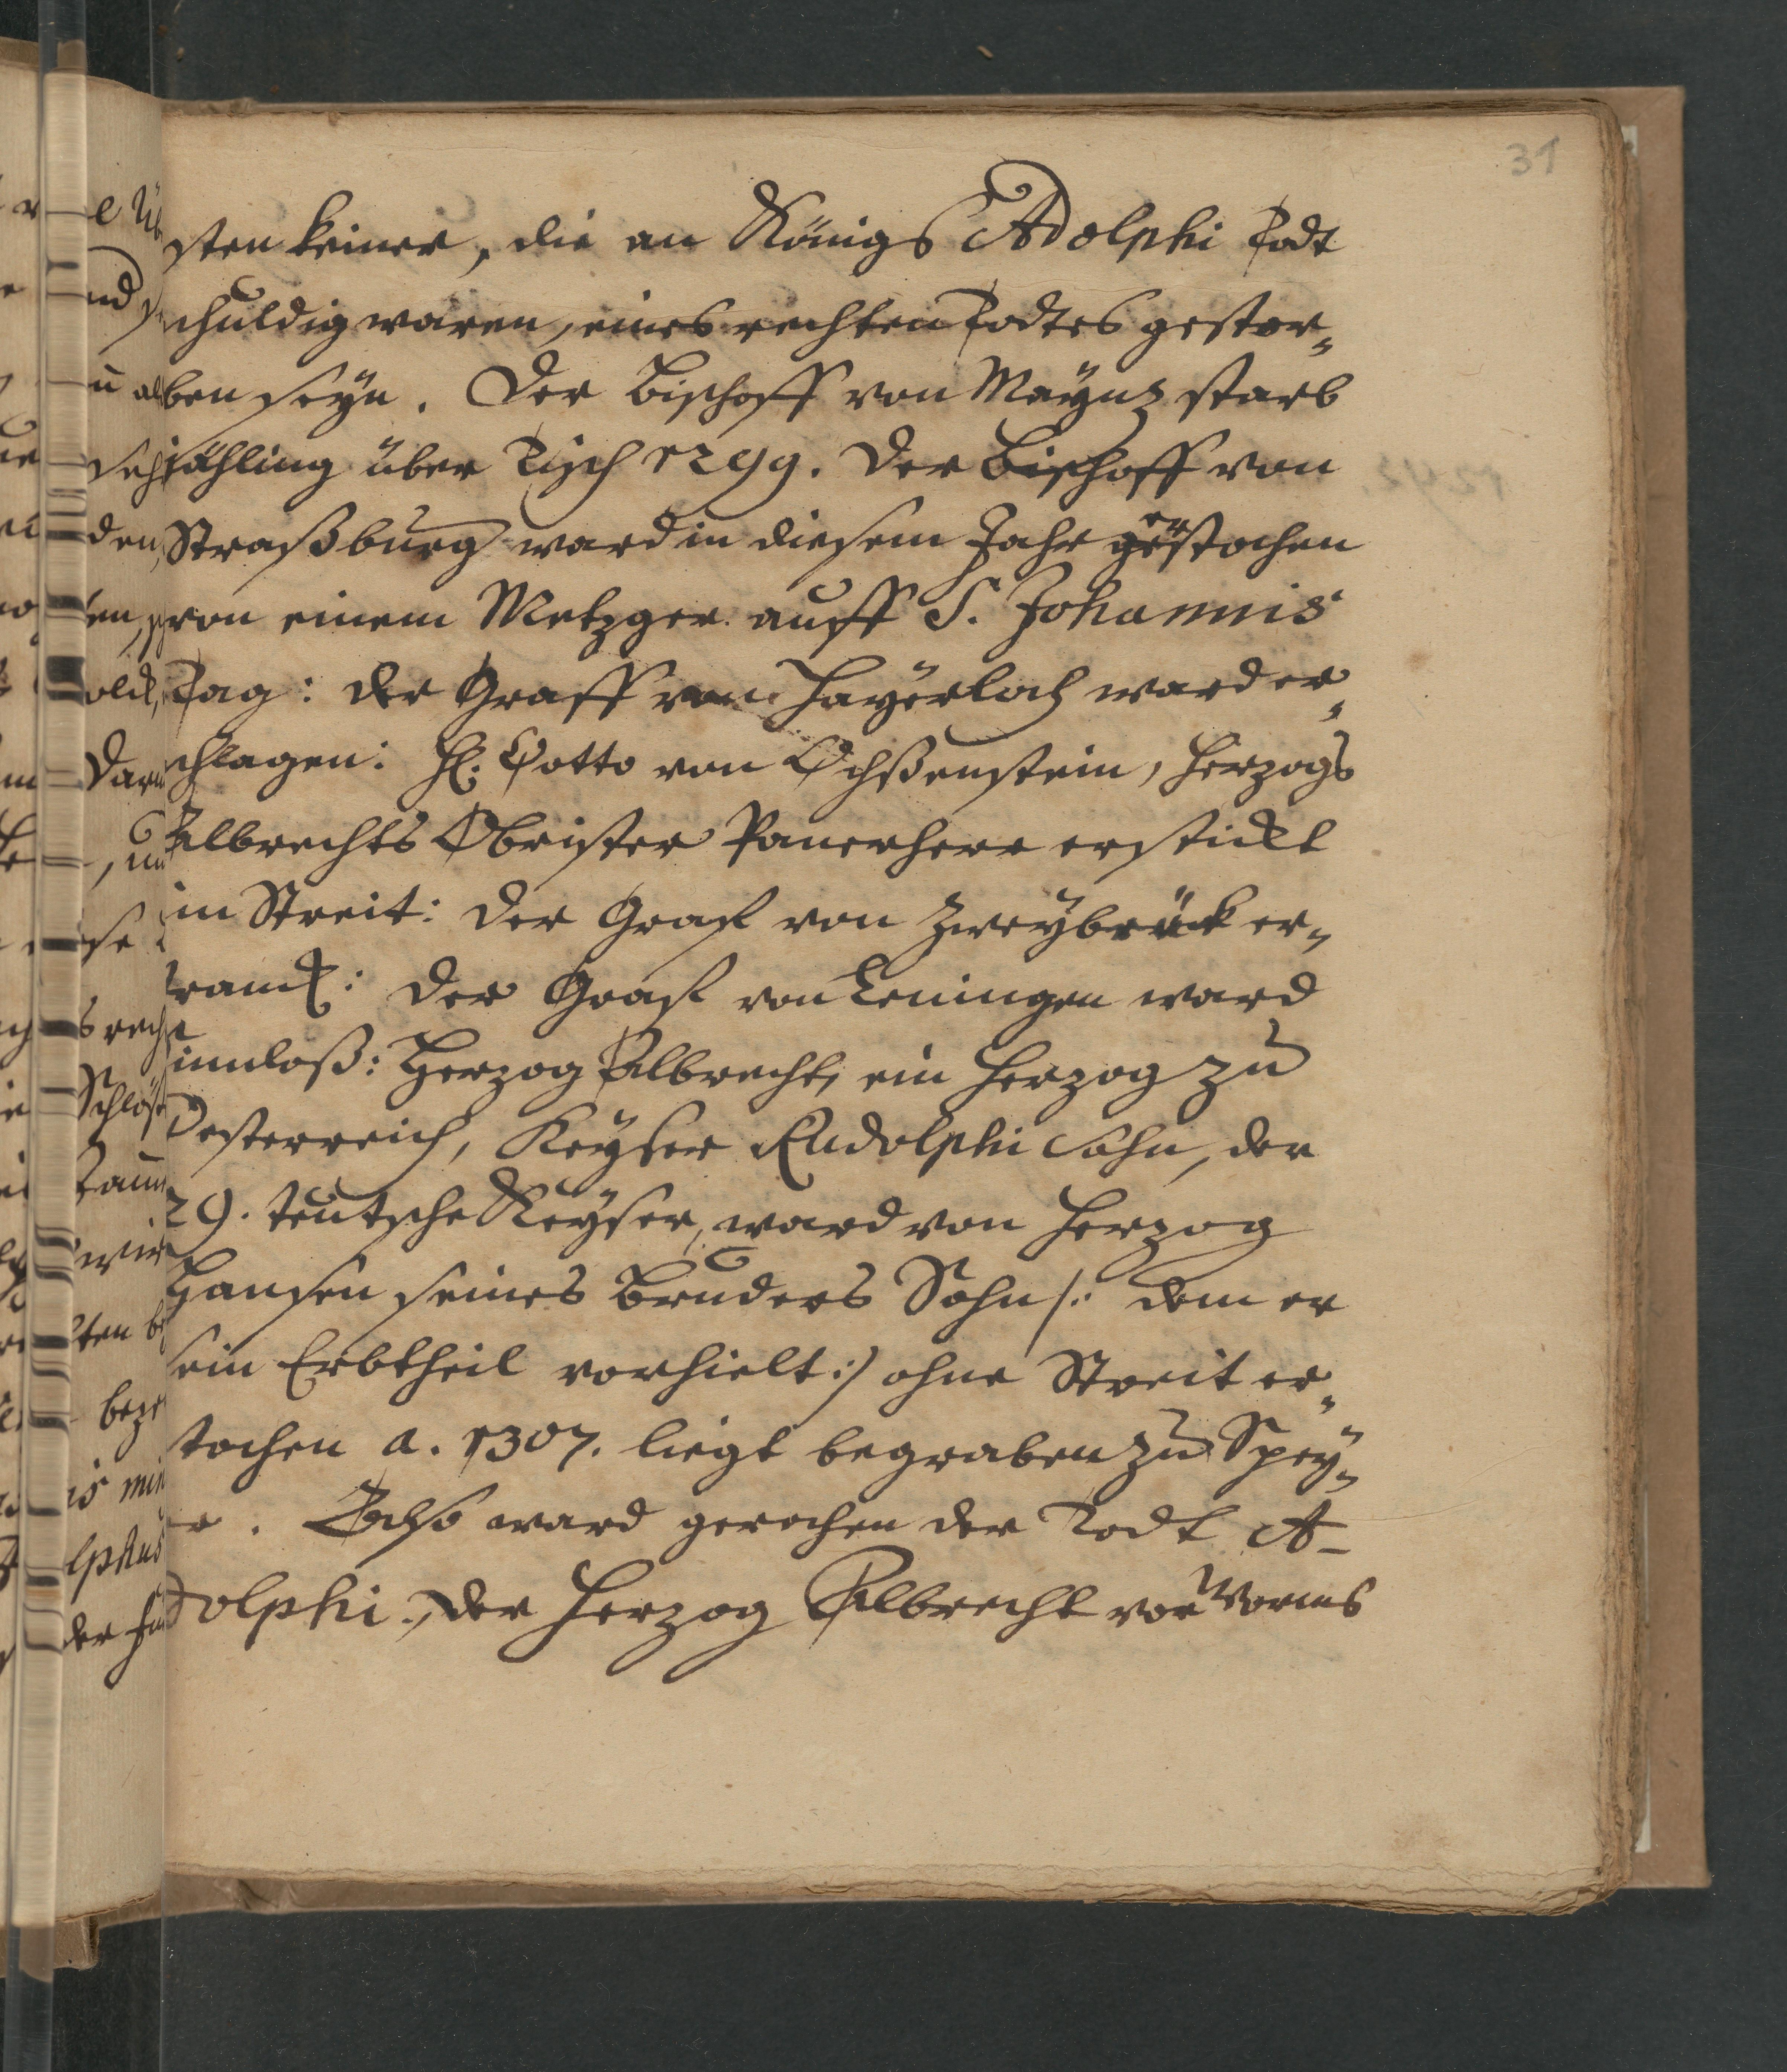 31
sten keiner, die an Königs Adolphi todt
schuldig waren, eines rechten todtes gestor-
ben seyn. Der Bischoff von Maynz starb
jähling über Tisch 1299. Der Bischoff von
Straßburg ward in diesem Jahr erstochen
von einem Metzger auff S. Johannis
Tag: der Graff von Hayerloch ward er-
schlagen: H. Otto von Ochßenstein, Herzogs
Albrechts Obrister Panerherr erstickt
im Streit: der Graf von Zweybrück er-
tranck: der Graf von Leningen ward
sinnloß: Herzog Albrecht, ein Herzog zu
Oesterreich, Keyser Rudolphi Sohn, der
29. teutsche Keyser, ward von Herzog
Hansen seines Bruders Sohn /: dem er
sein Erbtheil vorhielt :/ ohne Streit er-
stochen a. 1307. liegt begraben zu Spey-
er. Also ward gerochen der Todt A-
dolphi, der Herzog Albrecht vor Worms